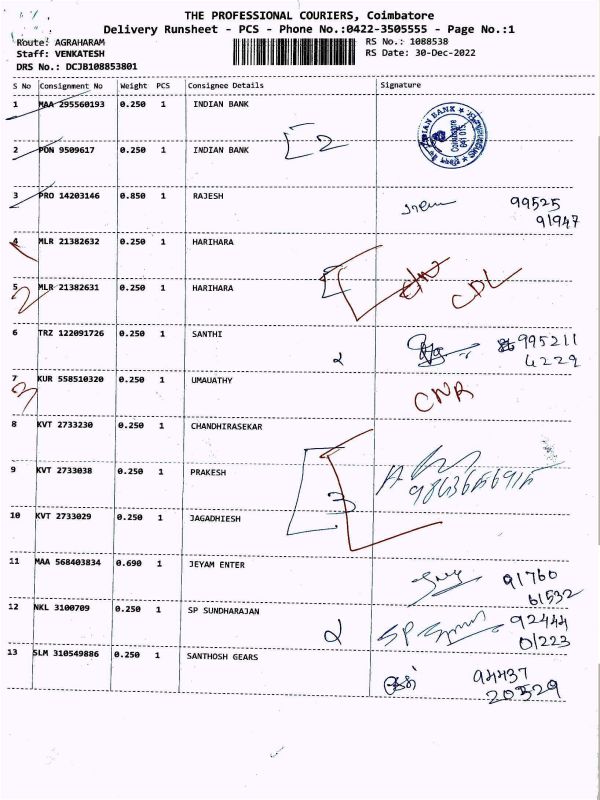 THE PROFESSIONAL COURIERS, Coimbatore
Delivery Runsheet - PCS - Phone No.:0422-3505555 - Page No.:1
Route: AGRAHARAM RS No.: 1088538
Staff: VENKATESH RS Date: 30-Dec-2022
DRS No.: DCJB108853801
S No Consignment No Weight PCS Consignee Details Signature
1 MAA 295560193 0.250 1 INDIAN BANK
INDIAN BANK
Coimbatore
2 PON 9509617 0.250 1 INDIAN BANK 2
3 PRO 14203146 0.850 1 RAJESH 99525
91947
4 MLR 21382632 0.250 1 HARIHARA
1
5 MLR 21382631 0.250 1 HARIHARA
2
6 TRZ 122091726 0.250 1 SANTHI 995211
2 4229
7 KUR 558510320 0.250 1 UMAUATHY CNR
3
8 KVT 2733230 0.250 1 CHANDHIRASEKAR
9 KVT 2733038 0.250 1 PRAKESH
3
10 KVT 2733029 0.250 1 JAGADHIESH
11 MAA 568403834 0.690 1 JEYAM ENTER 91760
61532
12 NKL 3100709 0.250 1 SP SUNDHARAJAN 92444
2 SP 01223
13 SLM 310549886 0.250 1 SANTHOSH GEARS 94437
20529